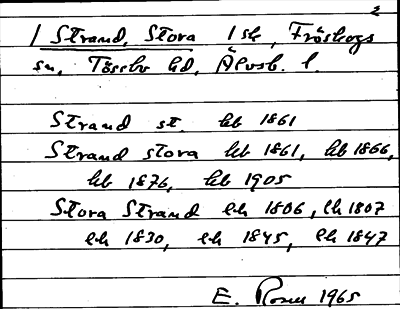 2
/ Strand, Stora 1 sk, Fröskogs
sn, Tössbo hd, Älvsb. l.
Strand st. hb 1861
Strand stora hb 1861, hb 1866,
hb 1876, hb 1905
Stora Strand lh 1806, lh 1807
lh 1830, lh 1845, lh 1847
E. Rosen 1965